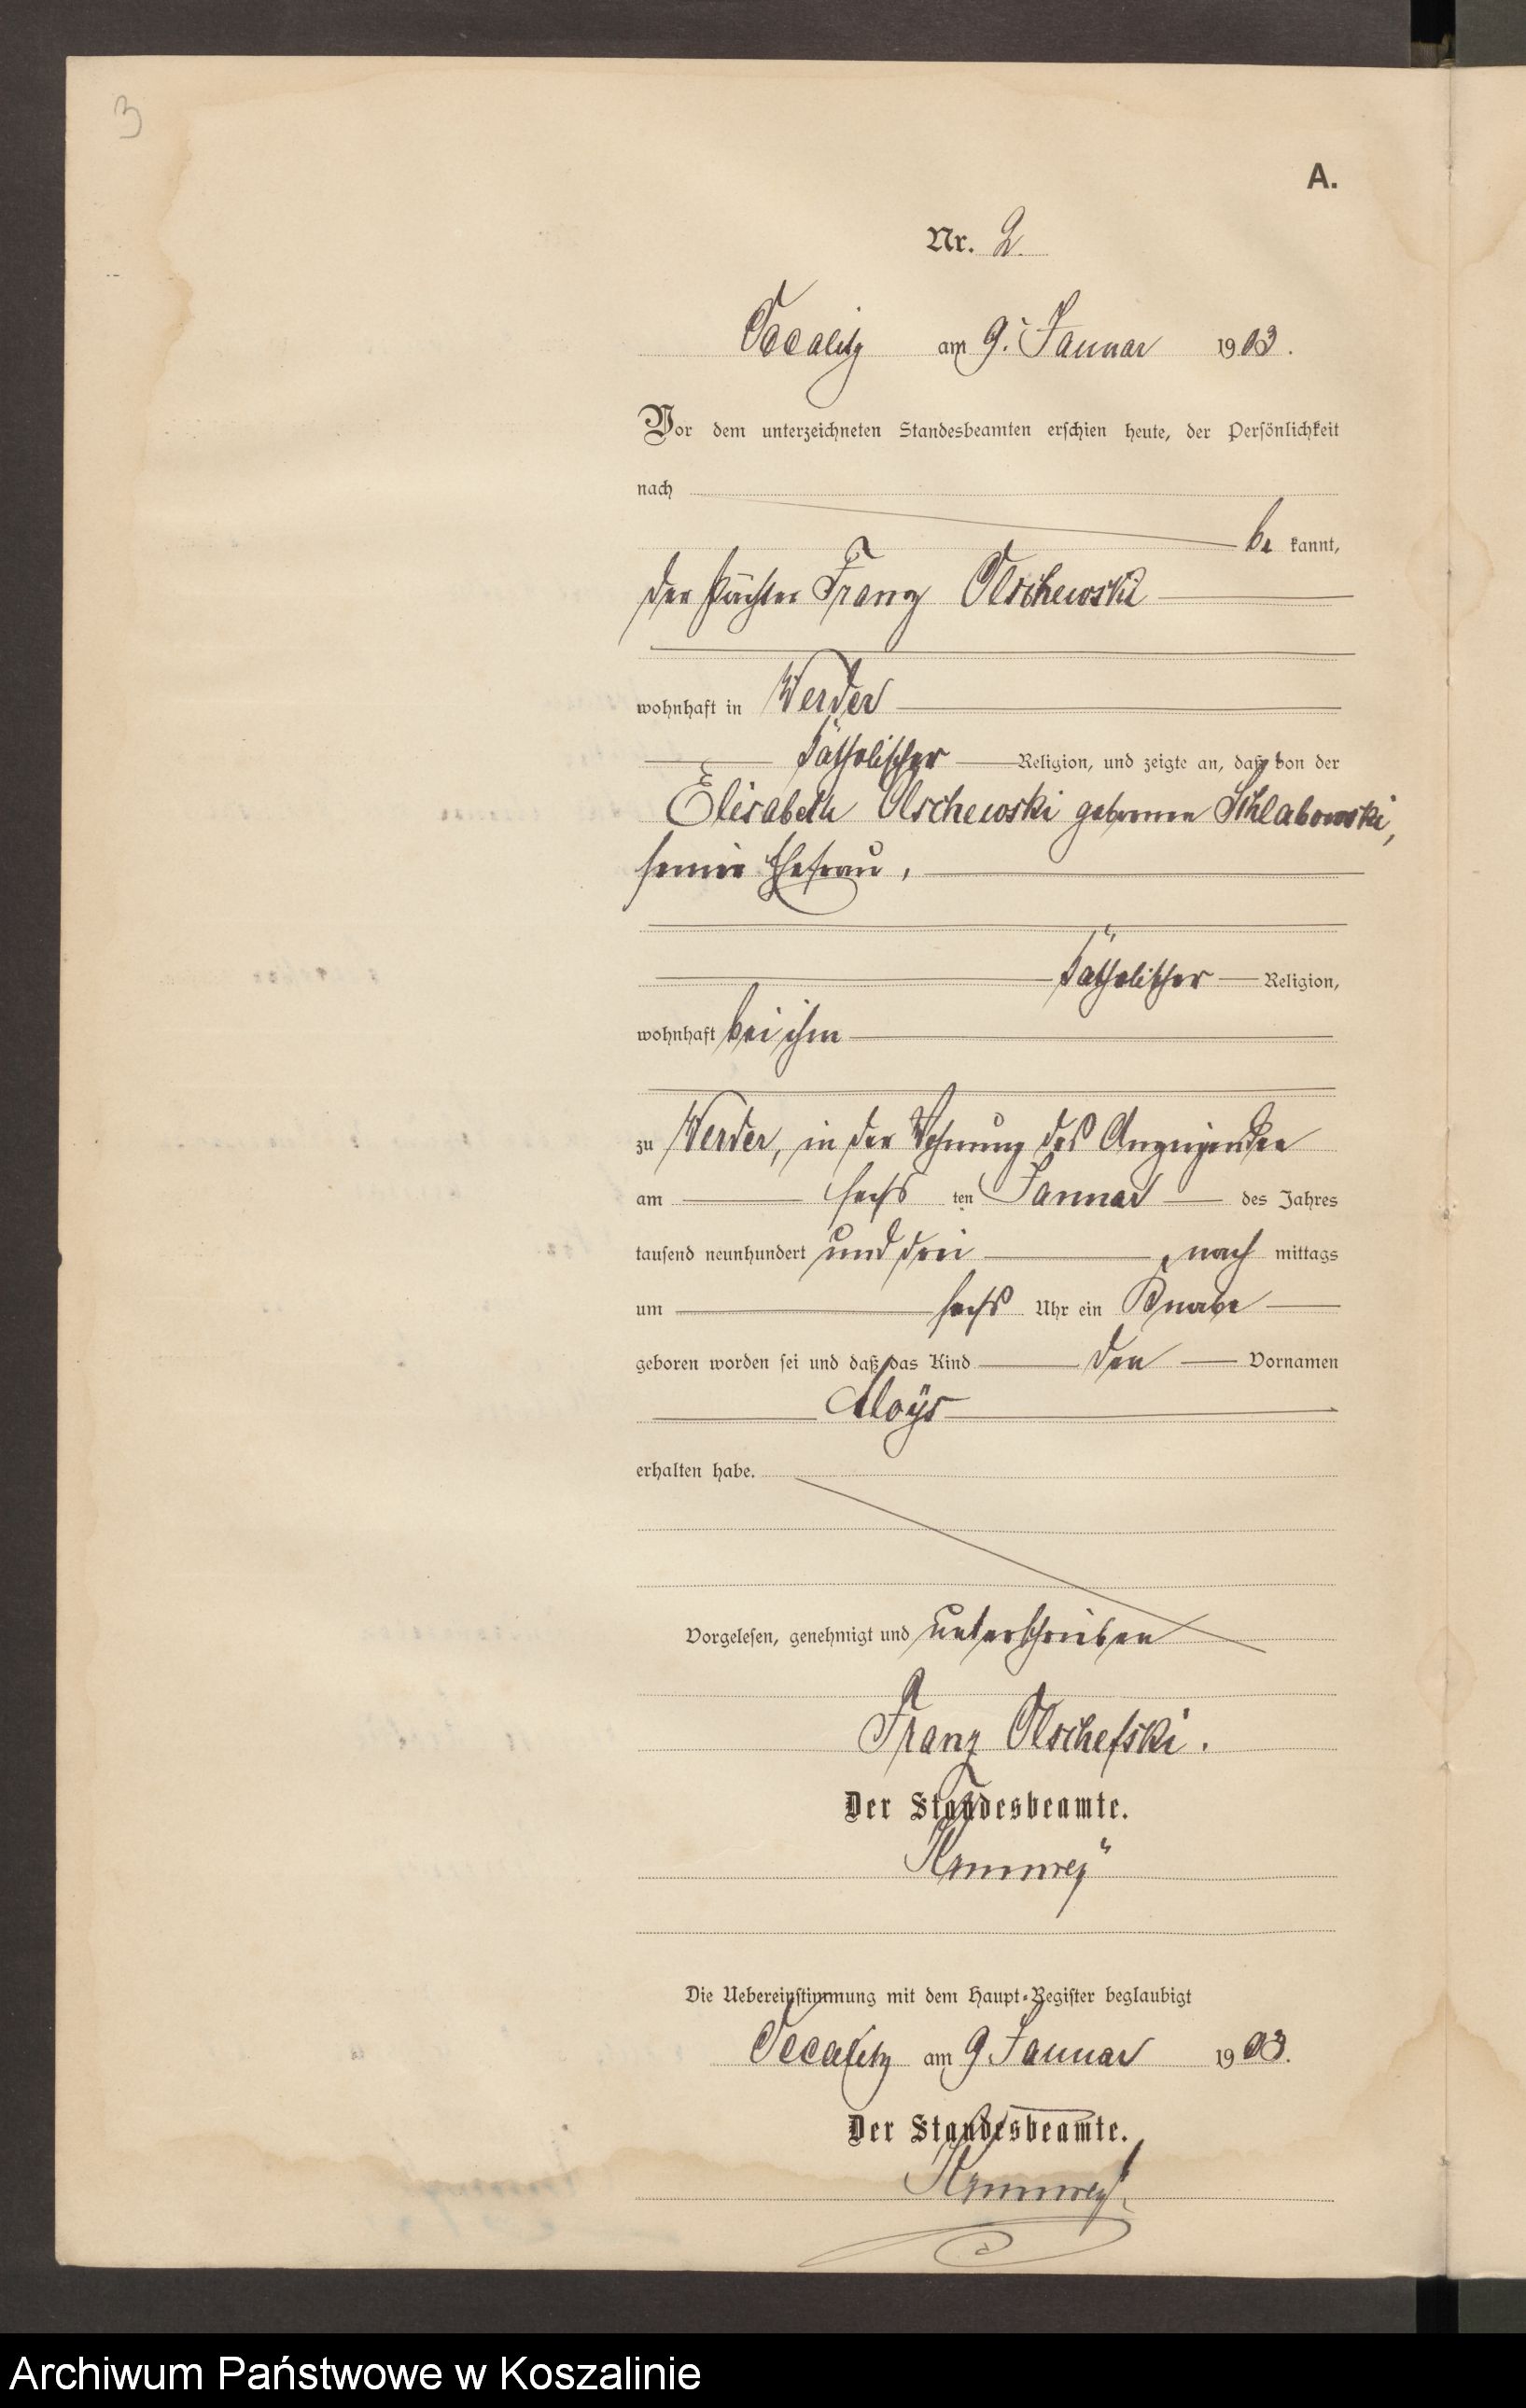 3
A.
Nr. 2.
Occalitz am 9. Januar 1903.
Vor dem unterzeichneten Standesbeamten erschien heute, der Persönlichkeit
nach
be kannt,
der Pächter Franz Olschewski
wohnhaft in Werder
katholischer Religion, und zeigte an, daß von der
Elisabeth Olschewski geborenen Schlabowski,
seiner Ehefrau,
katholischer Religion,
wohnhaft bei ihm
zu Werder, in der Wohnung des Anzeigenden
am sechs ten Januar des Jahres
tausend neunhundert und drei, nach mittags
um sechs Uhr ein Knabe
geboren worden sei und daß das Kind den Vornamen
Aloÿs
erhalten habe.
Vorgelesen, genehmigt und unterschrieben
Franz Olschefski.
Der Standesbeamte.
Die Uebereinstimmung mit dem Haupt-Register beglaubigt
Occalitz am 9 Januar 1903.
Der Standesbeamte.
Archiwum Państwowe w Koszalinie